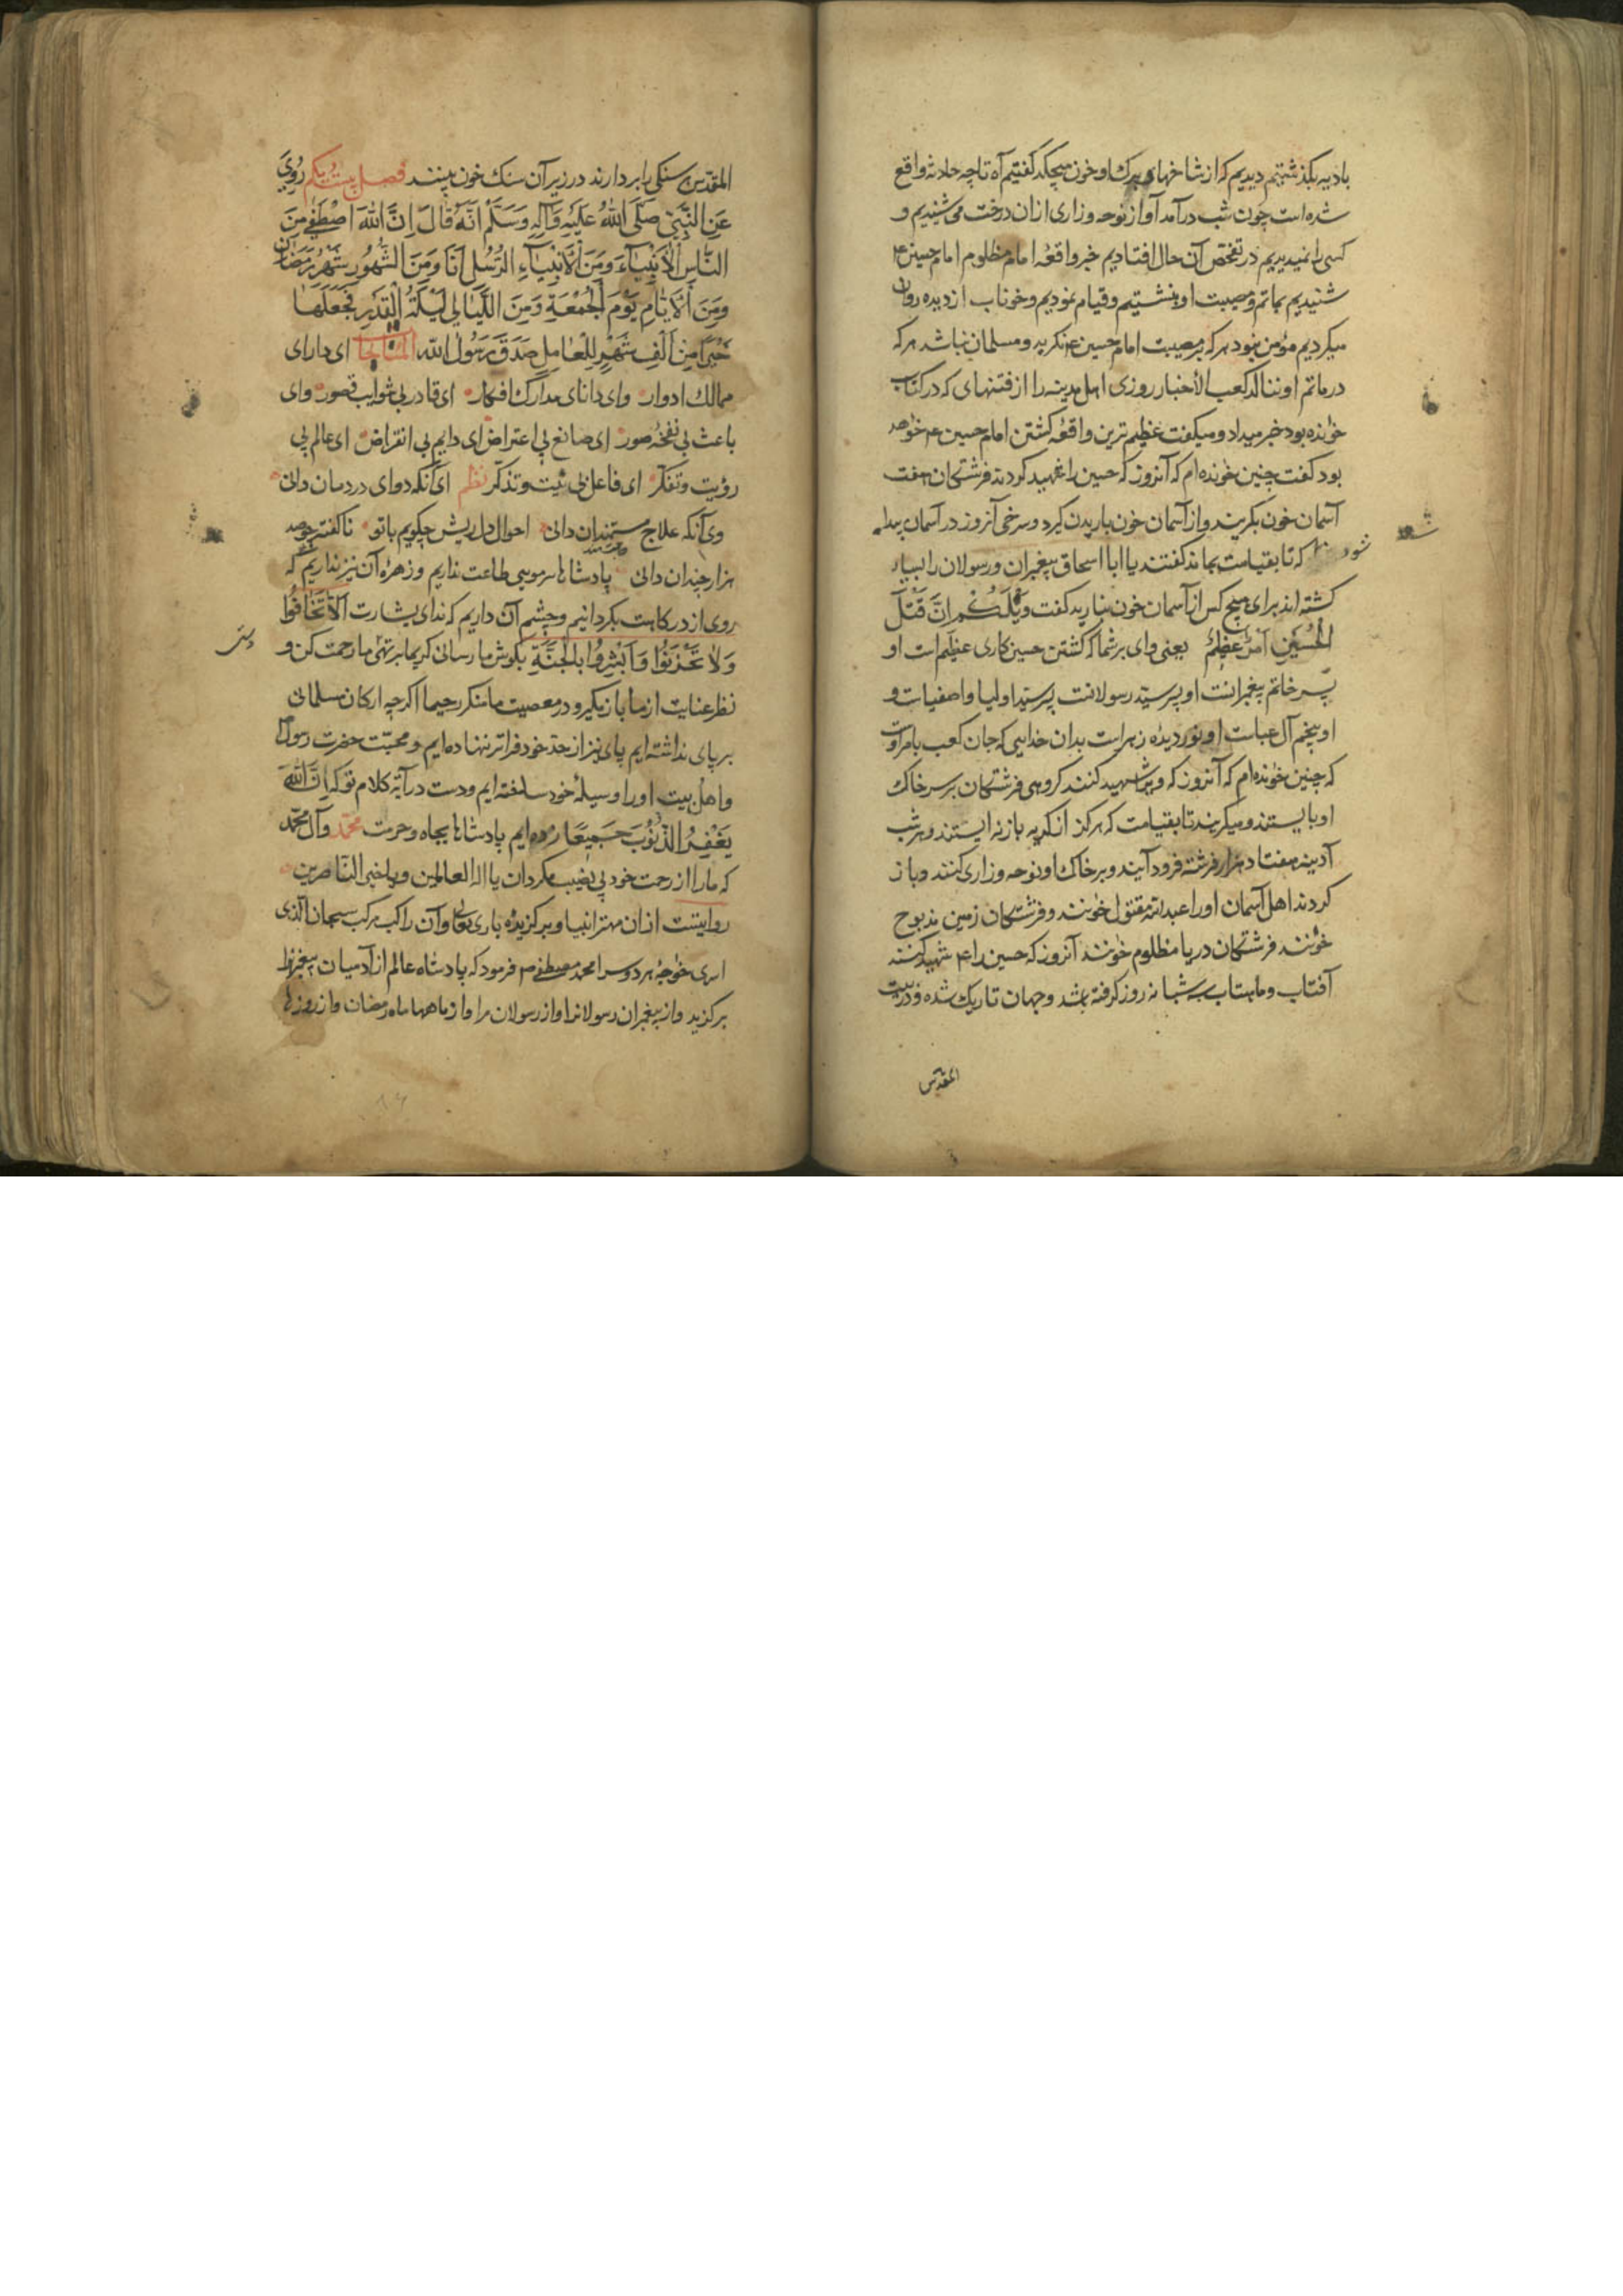 بادیه بگذشتیم دیدیم که از شاخهای و برک او خون میچکد گفتیم آه تا چه حادثه واقع
شده است چون شب درآمد آواز نوحه و زاری ازان درخت می شنیدیم و
کسی را نمیدیدیم در تفحص آن حال افتادیم خبر واقعهٔ امام مظلوم امام حسین ع
شنیدیم بماتم و مصیبت او بنشستیم و قیام نمودیم و خوناب از دیده روان
میکردیم مؤمن نبود هر که بر مصیبت امام حسین ع نکرید و مسلمان نباشد هر که
در ماتم او ننالد کعب الأخبار روزی اهل مدینه را از فتنهای که در کتاب
خوانده بود خبر میداد و میکفت عظیم ترین واقعهٔ کشتن امام حسین ع خواهد
بود کفت چنین خوانده ام که آنروز که حسین را شهید کردند فرشتکان هفت
آسمان خون بکریند و از آسمان خون باریدن کیرد و سرخی آنروز در آسمان پیدا
شود که تا بقیامت بماند کفتند یا ابا اسحاق پیغمبران و رسولان را بسیار
کشته اند برای هیچ کس از آسمان خون نبارید کفت وَیْلَكُمْ اِنَّ قَتْلَ
الْحُسَیْنِ اَمْرٌ عَظِیْمٌ یعنی وای بر شما که کشتن حسین کاری عظیم است او
پسر خاتم پیغمبرانست او پسر سید رسولانست پسر سید اولیا و اصفیاست و
او پنجم آل عباست او نور دیده زهراست بدان خدایی که جان کعب بامر اوست
که چنین خوانده ام که آنروز که ویرا شهید کنند کروهی فرشتکان بر سر خاک
او بایستند و میکریند تا بقیامت که هرکز از کریه باز نه ایستند و هر شب
آدینه هفتاد هزار فرشته فرود آیند و بر خاک او نوحه و زاری کنند و باز
کردند اهل آسمان او را عبدالله مقتول خوانند و فرشتکان زمین مذبوح
خوانند فرشتکان دریا مظلوم خوانند آنروز که حسین را ع شهید کنند
آفتاب و ماهتاب سه شبانه روز کرفته باشد و جهان تاریک شده و در بیت
المقدس
المقدس سنکی را بردارند در زیر آن سنک خون بینند فصل بیست و یکم رُوِیَ
عَنِ النَّبِیِّ صَلَّی اللهُ عَلَیْهِ وَآلِهِ وَسَلَّمْ اَنَّهُ قَالَ اِنَّ اللهَ اصْطَفٰی مِنَ
النَّاسِ الْاَنْبِیَآءَ وَمِنَ الْاَنْبِیَآءِ الرُّسُلِ اَنَا وَمِنَ الشُّهُورِ شَهْرُ رَمَضَانَ
وَمِنَ الْاَیَّامِ یَوْمَ الْجُمُعَةِ وَمِنَ اللَّیَالِی لَیْلَةُ الْقَدْرِ فَجَعَلَهَا
خَیْرًا مِنْ اَلْفِ شَهْرٍ لِلْعَامِلِ صَدَقَ رَسُولُ الله المناجات ای دارای
ممالک ادوار وای دانای مدارک افکار ای قادر بی شوایب قصور وای
باعث بی نفخهٔ صور ای صانع بی اعتراض ای دایم بی انقراض ای عالم بی
رؤیت و تفکر ای فاعل بی نیت و تذکر نظم ای آنکه دوای دردمان دانی
وی آنکه علاج مستمندان دانی احوال دل ریش چکویم با تو ناکفته چو صد
هزار چندان دانی پادشاها سرمویی طاعت نداریم و زهره آن نیز نداریم که
روی از درکاهت بکردانیم و چشم آن داریم که ندای بشارت اَلَّا تَخَافُوا
وَلَا تَحْزَنُوا وَاَبْشِرُوا بِالْجَنَّةِ بکوش ما رسانی کریما بر تهٔی ما رحمت کن و
نظر عنایت از ما باز مکیر و در معصیت ما منکر رحیما اکرچه ارکان مسلمانی
بر پای نداشته ایم پای نیز از حد خود فراتر ننهاده ایم و محبت حضرت رسول
و اهل بیت او را وسیلهٔ خود ساخته ایم و دست در آیهٔ کلام تو که اِنَّ اللهَ
یَغْفِرُ الذُّنُوبَ جَمِیعًا زده ایم پادشاها بجاه و حرمت محمّد و آل محمّد
که ما را از رحمت خود بی نصیب مکردان یا اله العالمین و یا خیر الناصرین
روایتست ازان مهتر انبیا و برکزیده باری تعالی و آن راکب مرکب سبحان الذی
اسری خواجهٔ هر دو سرا محمد مصطفی ص فرمود که پادشاه عالم از آدمیان پیغمبرانرا
برکزید و از پیغمبران رسولانرا و از رسولان مرا و از ماهها ماه رمضان و از روزها